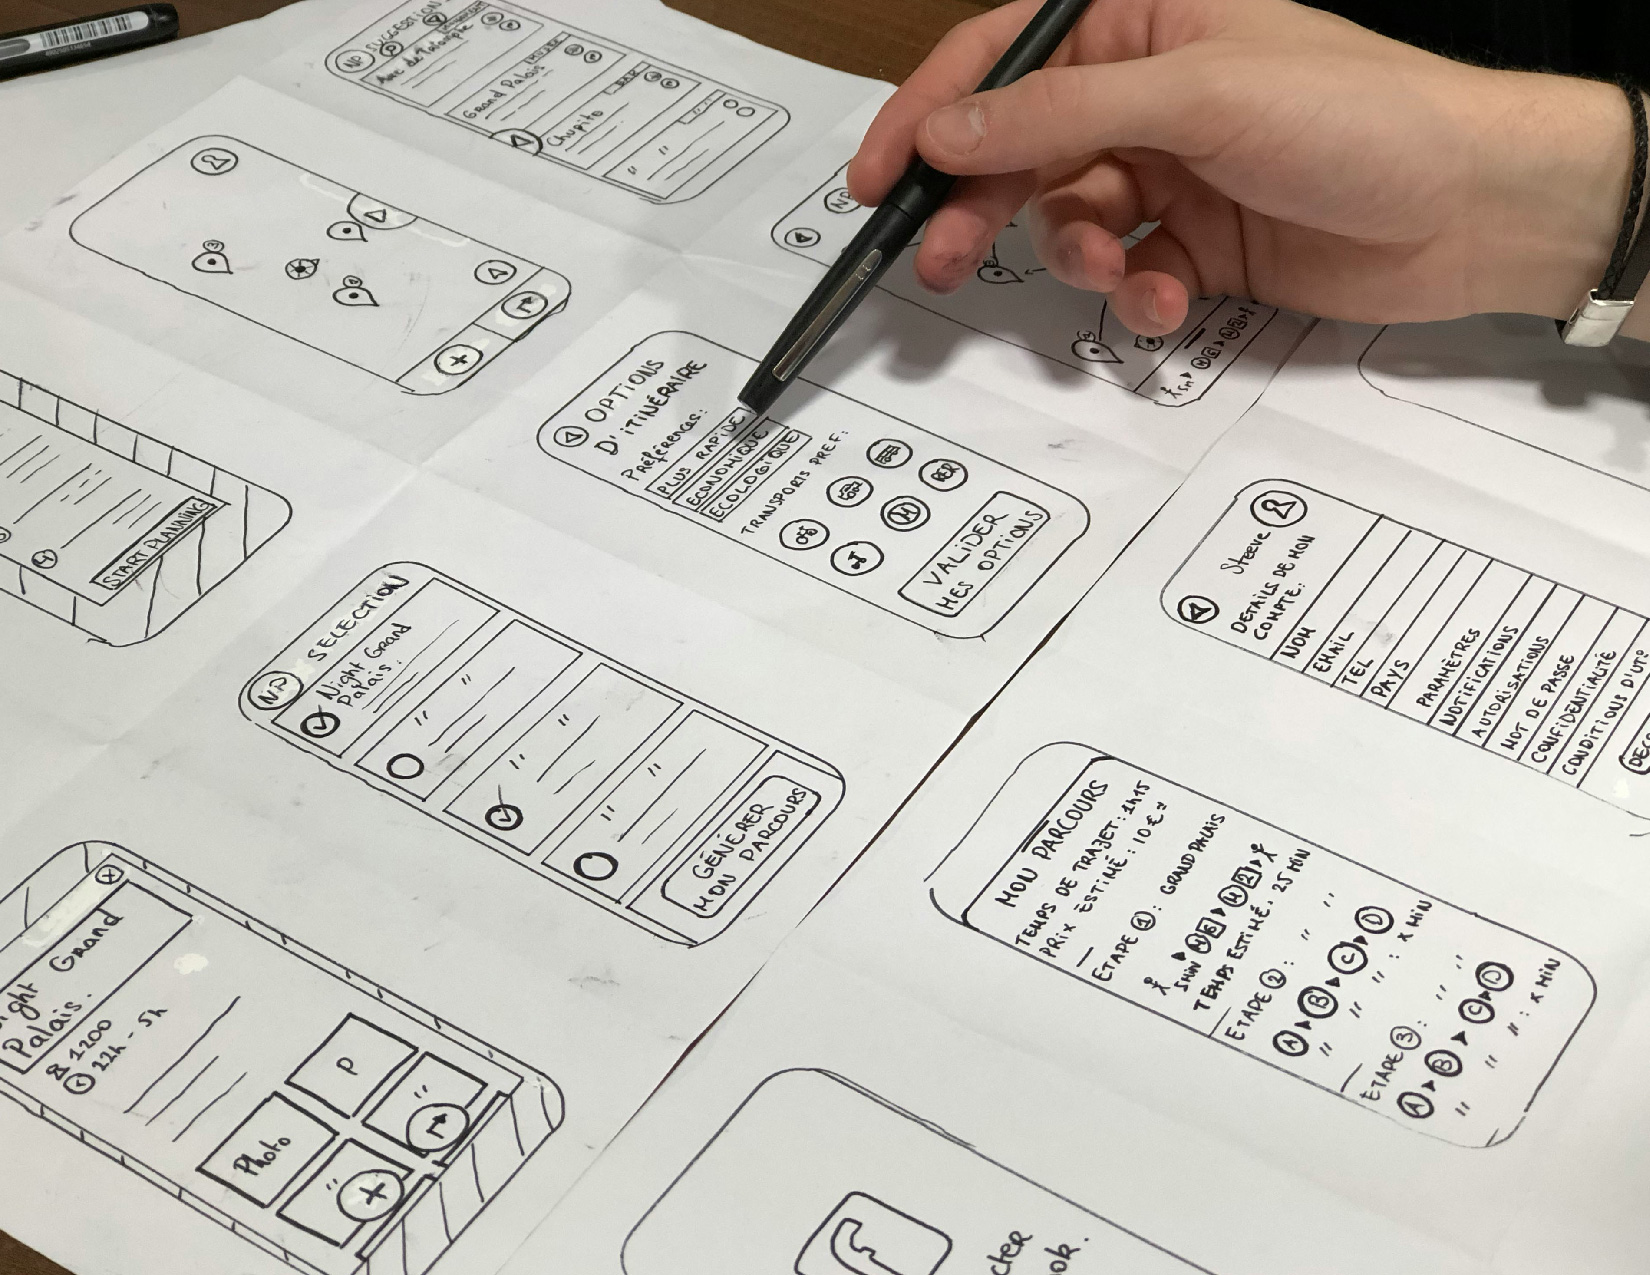 SUGGESTION
NP
Arc de Triomphe
Grand Palais
Chupito
BAR
NP
OPTIONS
D'ITINÉRAIRE
Préférences:
PLUS RAPIDE
ECONOMIQUE
ECOLOGIQUE
TRANSPORTS PREF:
RER
M
VALIDER
MES OPTIONS
START PLANNING
4
NP
SELECTION
Night Grand
Palais.
GÉNÉRER
MON PARCOURS
Steeve
DETAILS DE MON
COMPTE:
NOM
EMAIL
TEL
PAYS
PARAMÈTRES
NOTIFICATIONS
AUTORISATIONS
MOT DE PASSE
CONFIDENTIALITÉ
CONDITIONS D'UT°
MON PARCOURS
TEMPS DE TRAJET: 1h15
PRIX ESTIMÉ: 10€
ETAPE 1: GRAND PALAIS
5MIN
TEMPS ESTIMÉ: 25 MIN
ETAPE 2: "
A B C D
" " : X MIN
ETAPE 3: "
A B C D
" " : X MIN
Grand
Palais.
1200
22h - 5h
P
Photo